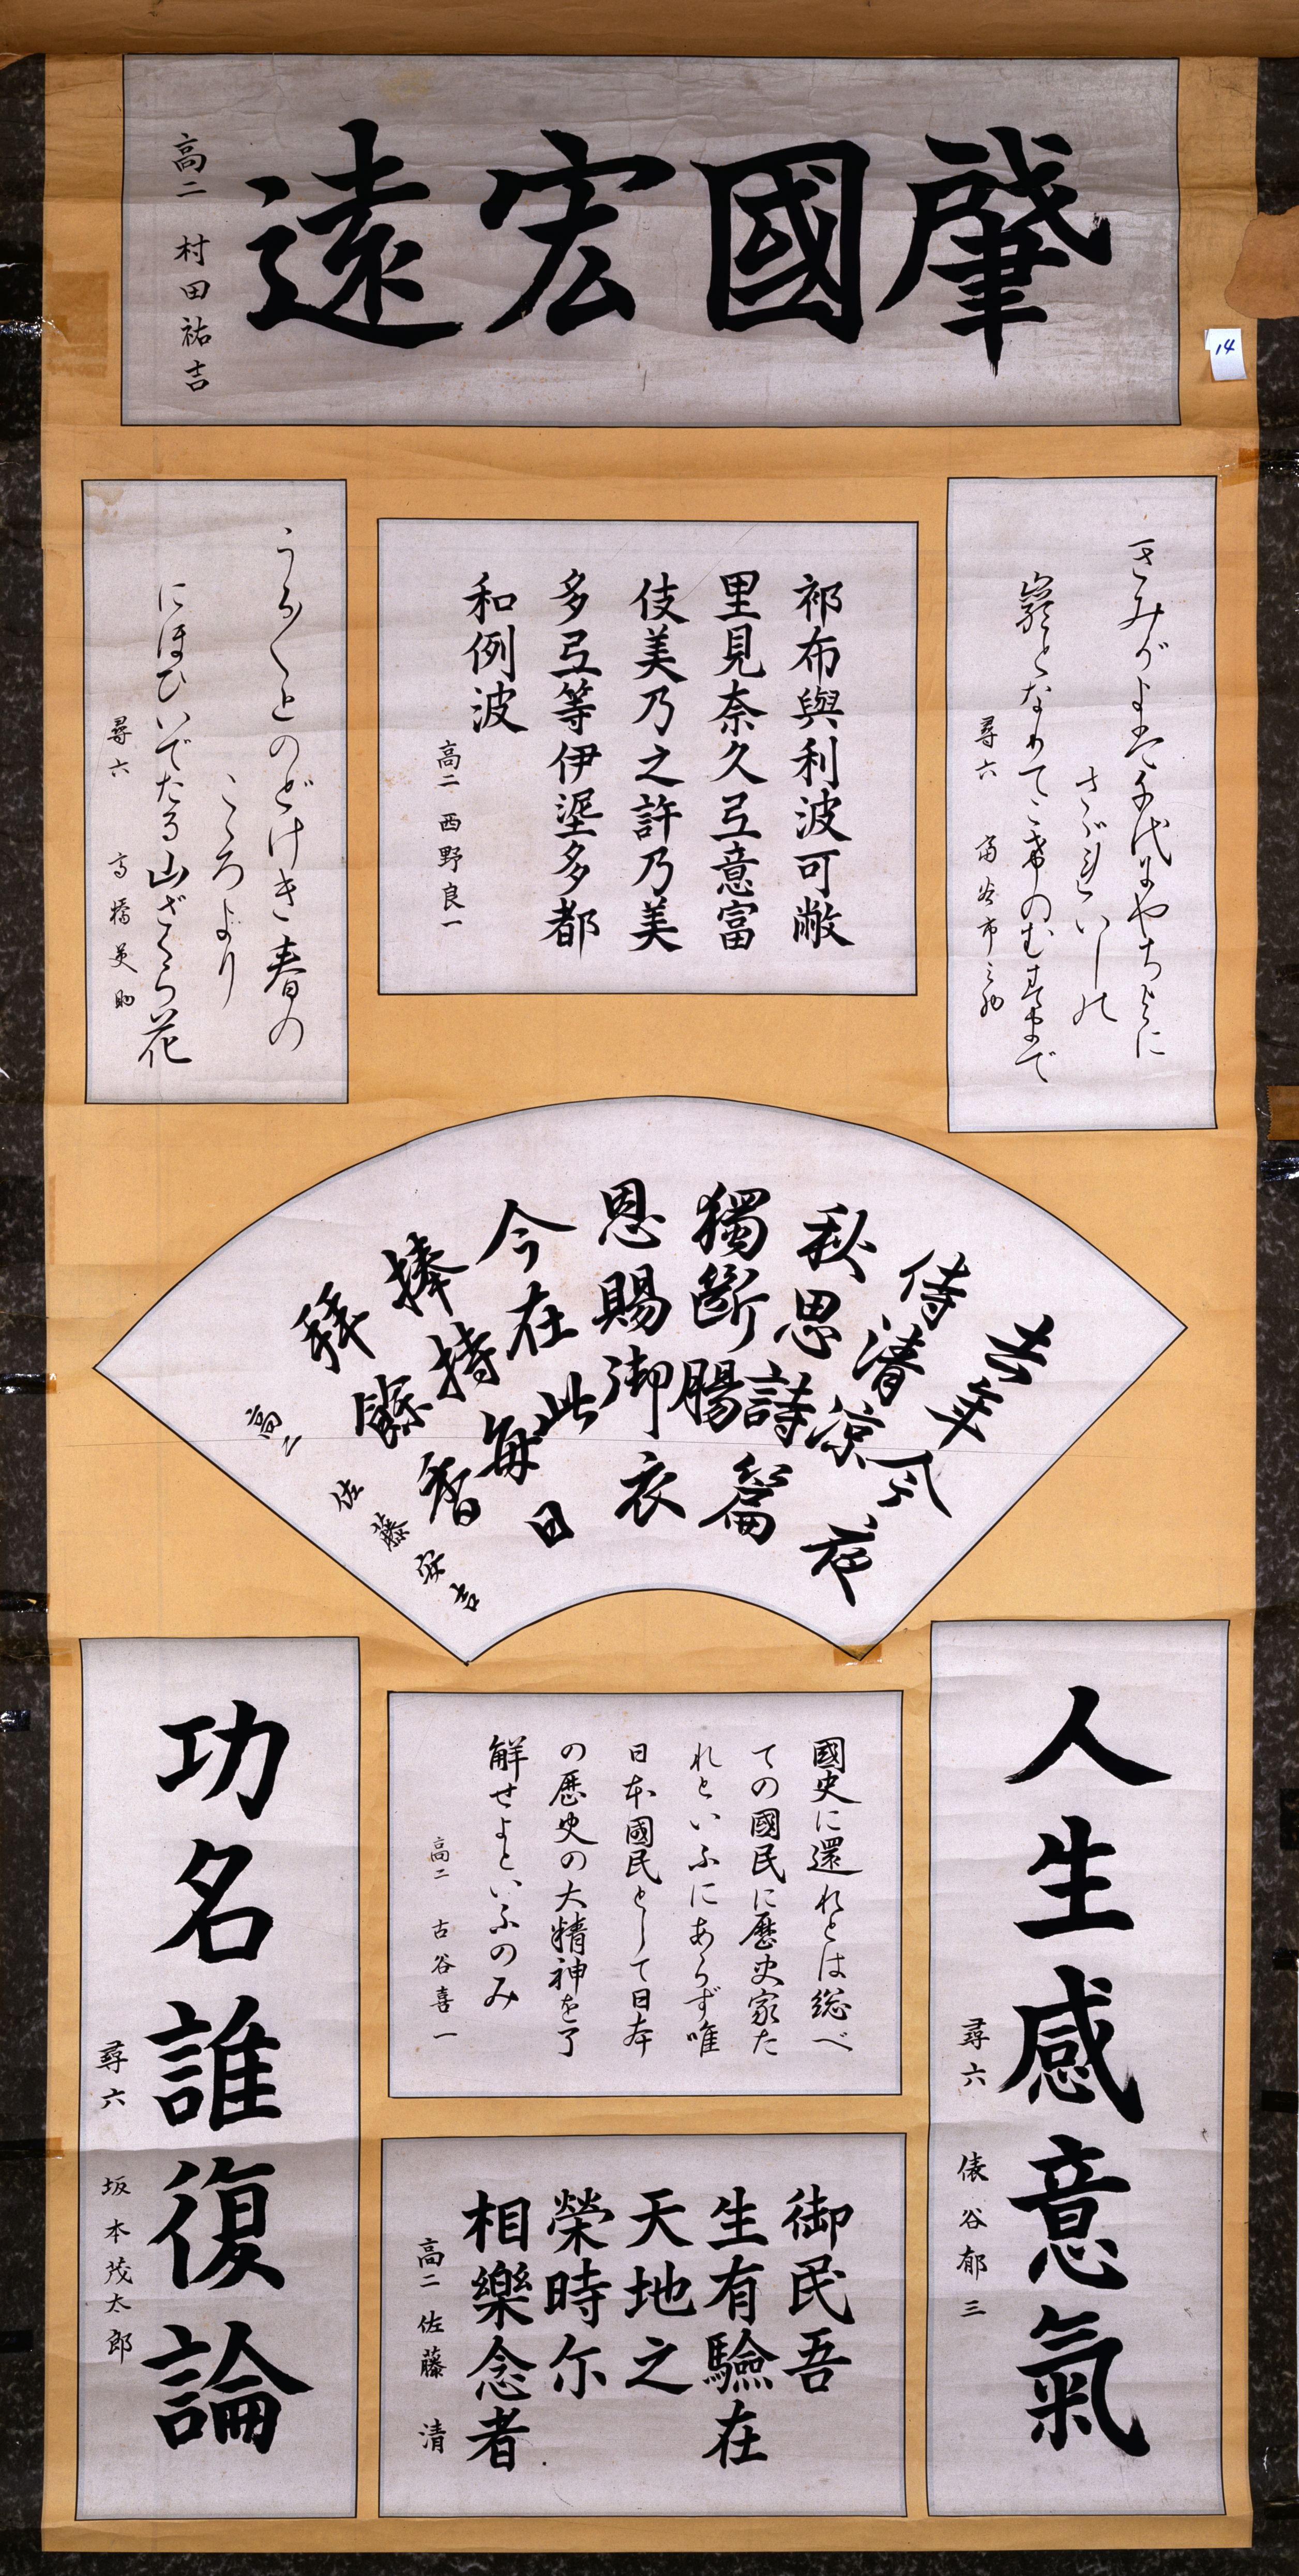 肇國宏遠
高二 村田祐吉
14
きみがよは千代にやちよに
さゞれいしの
巌となりてこけのむすまで
尋六
祁布與利波可敝
里見奈久弖意富
伎美乃之許乃美
多弖等伊埿多都
和例波
高二 西野良一
うら〱とのどけき春の
こゝろより
にほひいでたる山ざくら花
尋六 高橋英助
去年今夜
侍清涼
秋思詩篇
獨斷腸
恩賜御衣
今在此
捧持毎日
拜餘香
高二 佐藤安吉
人生感意氣
尋六 俵谷郁三
國史に還れとは総べ
ての國民に歴史家た
れといふにあらず唯
日本國民として日本
の歴史の大精神を了
解せよといふのみ
高二 古谷喜一
御民吾
生有驗在
天地之
榮時尓
相樂念者
高二 佐藤清
功名誰復論
尋六 坂本茂太郎